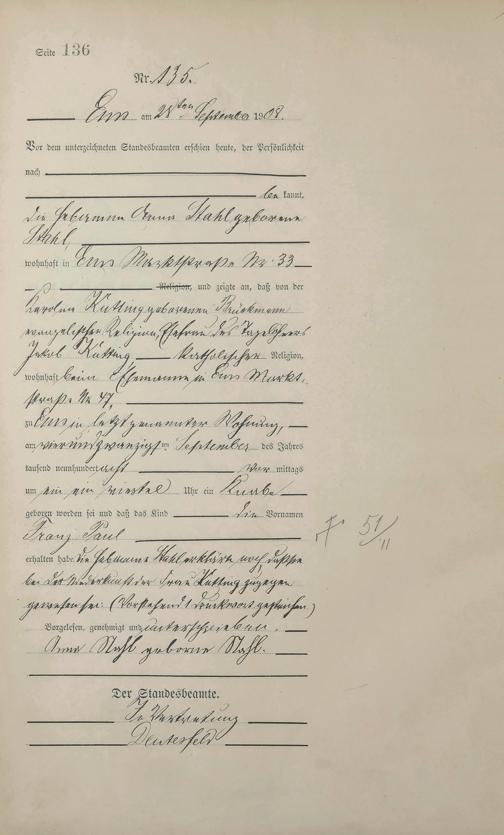 Seite 136
Nr. 135.
Ems am 28ten September 1908.
Vor dem unterzeichneten Standesbeamten erschien heute, der Persönlichkeit
nach
be kannt,
die Hebamme Anna Stahl geborene
Stahl,
wohnhaft in Ems Marktstraße Nr. 33
Religion, und zeigte an, daß von der
Karoline Kütting geborenen Brückmann
evangelischer Religion, Ehefrau des Tagelöhners
Jakob Kütting katholischer Religion,
wohnhaft beim Ehemanne in Ems Markt-
straße Nr 47,
zu Ems in letztgenannter Wohnung,
am vierundzwanzigsten September des Jahres
tausend neunhundert acht Vor mittags
um ein ein viertel Uhr ein Knabe
geboren worden sei und daß das Kind die Vornamen
Franz Paul
erhalten habe. Die Hebamme Stahl erklärte noch, daß sie
bei der Niederkunft der Frau Kütting zugegen
gewesen sei. (Vorstehend 1 Druckwort gestrichen.)
Vorgelesen, genehmigt und unterschrieben.
Anna Stahl geborne Stahl.
Der Standesbeamte.
In Vertretung
51/11